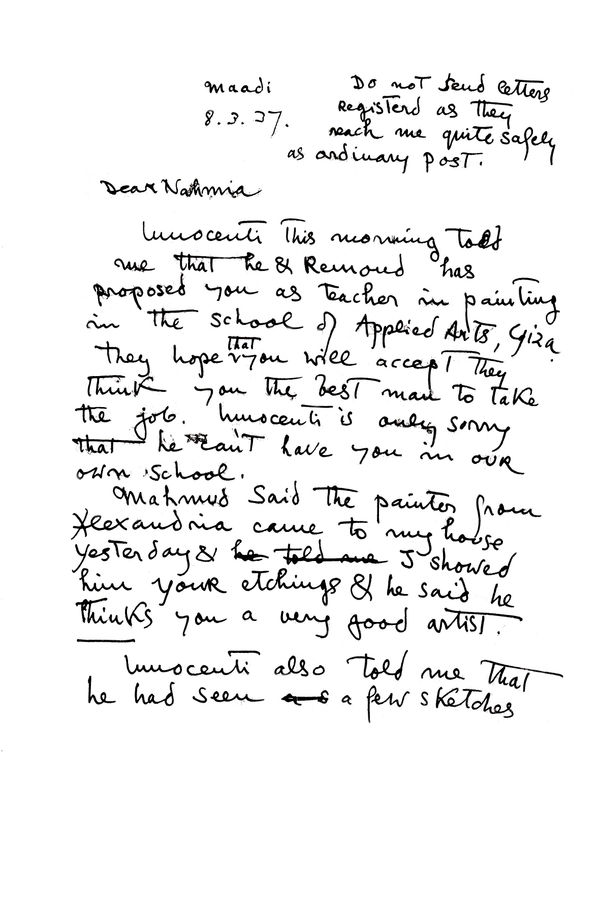 Maadi
8.3.37.
Do not send letters
Registerd as they
reach me quite safely
as ordinary post.
Dear Nahmia
Innocenti this morning told
me that he & Remond has
proposed you as teacher in painting
in the school of Applied Arts, Giza
they hope that you will accept they
think you the best man to take
the job. Innocenti is only sorry
that he can't have you in our
own school.
Mahmud Said the painter from
Alexandria came to my house
yesterday & he told me I showed
him your etchings & he said he
thinks you a very good artist.
Innocenti also told me that
he had seen as a few sketches